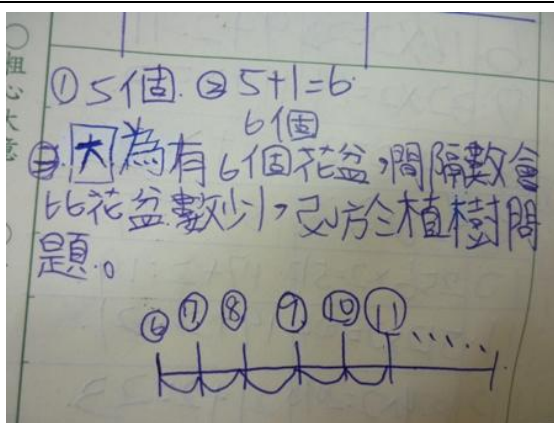 粗心大意
① 5個. ② 5+1=6
6個
㊂ 因為有6個花盆,間隔數會
比花盆數少1,
題。
⑥ ⑦ ⑧ ⑨ ⑩ ⑪ ......